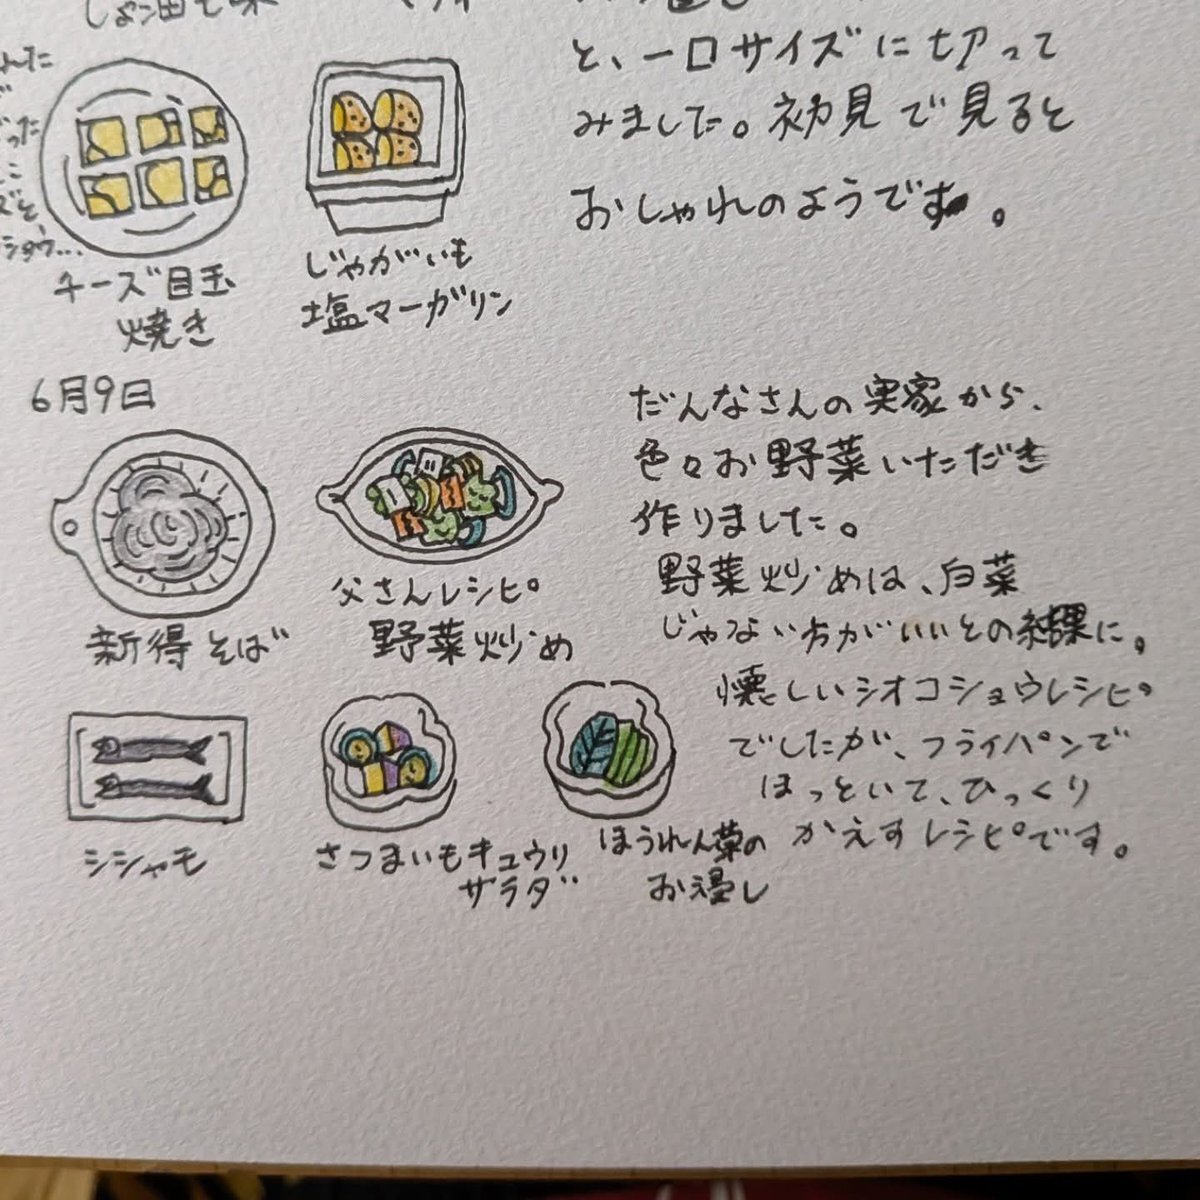 しょ油
と、一口サイズに切って
みました。初見で見ると
おしゃれのようです。
チーズ目玉
焼き
じゃがいも
塩マーガリン
6月9日
新得そば
父さんレシピ
野菜炒め
シシャモ
さつまいもキュウリ
サラダ
ほうれん草の
お浸し
だんなさんの実家から、
色々お野菜いただき
作りました。
野菜炒めは、白菜
じゃない方がいいとの結果に。
懐しいシオコショウレシピ
でしたが、フライパンで
ほっといて、ひっくり
かえすレシピです。